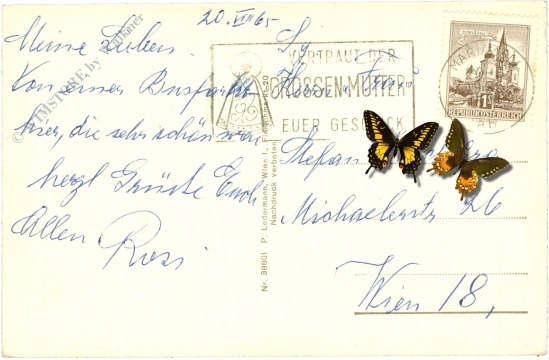 20. VIII 65
Meine Lieben.
Von einer Busfahrt
hier, die sehr schön war
herzl Grüsse Euch
Allen Rosi
© TIMSTORE by Falkner
VERTRAUT DER
GROSSEN MUTTER
EUER GESCHICK
MARIAZELL
REPUBLIK ÖSTERREICH
Nr. 38801 P. Ledermann, Wien 1,
Nachdruck verboten
Stefan
Michaelerstr 26
Wien 18,